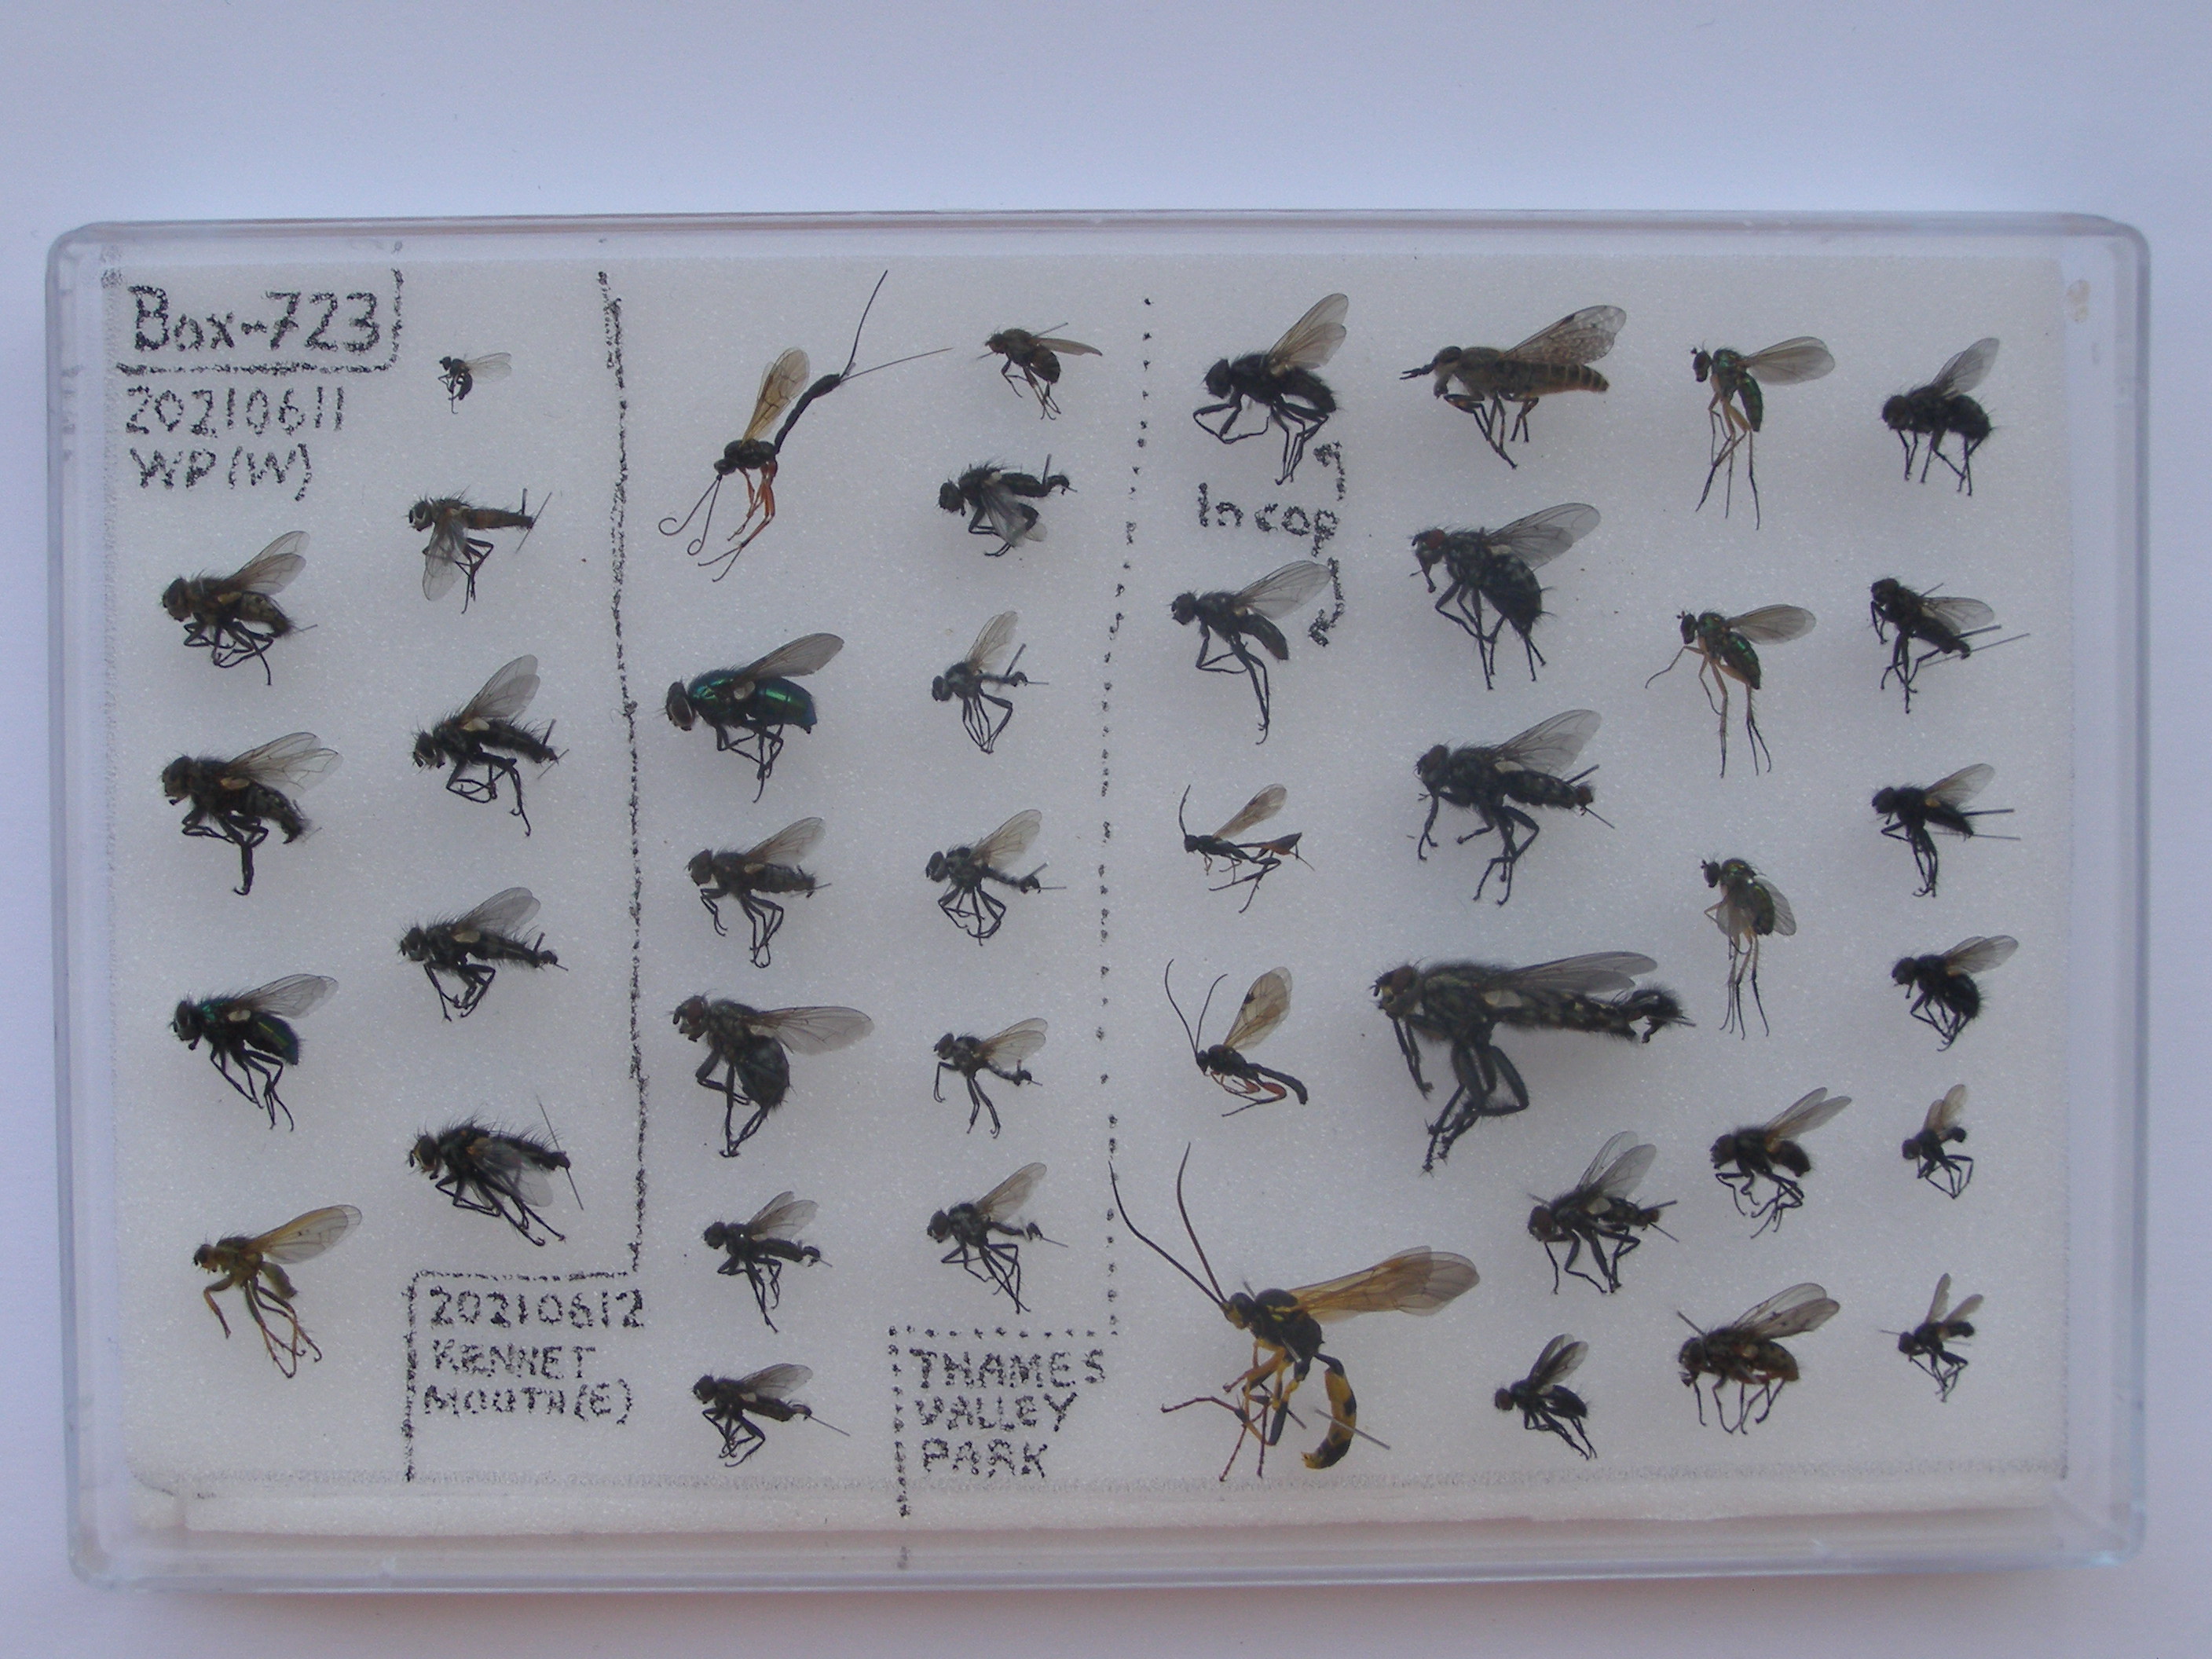 Box-723
20210611
WP(W)
20210612
KENNET
MOUTH(E)
THAMES
VALLEY
PARK
In cop